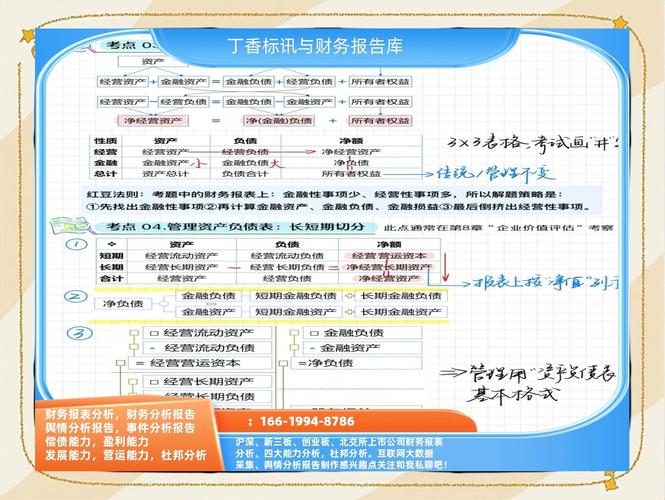 丁香标讯与财务报告库
考点 03
资产
经营资产 + 金融资产 = 金融负债 + 经营负债 + 所有者权益
经营资产 - 经营负债 = 金融负债 - 金融资产 + 所有者权益
净经营资产 = 净(金融)负债 + 所有者权益
性质 资产 负债 净额
经营 经营资产 经营负债 净经营资产
金融 金融资产 小 金融负债 大 净负债
总计 资产总计 负债合计 所有者权益
3×3表格,考试画"井"
传统/管理不变
红豆法则:考题中的财务报表上:金融性事项少、经营性事项多,所以解题策略是:
①先找出金融性事项②再计算金融资产、金融负债、金融损益③最后倒挤出经营性事项。
考点 04.管理资产负债表:长短期切分 此点通常在第8章"企业价值评估"考察
① 资产 负债 净额
短期 经营流动资产 经营流动负债 经营营运资本
长期 经营长期资产 - 经营长期负债 = 净经营长期资产
合计 经营资产 经营负债 净经营资产
报表上按"净值"列示
② 净负债 金融负债 短期金融负债 + 长期金融负债
金融资产 短期金融资产 长期金融资产
③ 经营流动资产 金融负债
- 经营流动负债 - 金融资产
= 经营营运资本 =净负债
经营长期资产
- 经营长期负债
管理用"资产负债表
基本格式
财务报表分析,财务分析报告
舆情分析报告,事件分析报告
偿债能力,盈利能力
发展能力,营运能力,杜邦分析
:166-1994-8786
沪深、新三板、创业板、北交所上市公司财务报表
分析、四大能力分析,杜邦分析。互联网大数据
采集、舆情分析报告制作感兴趣点关注和我私聊吧!